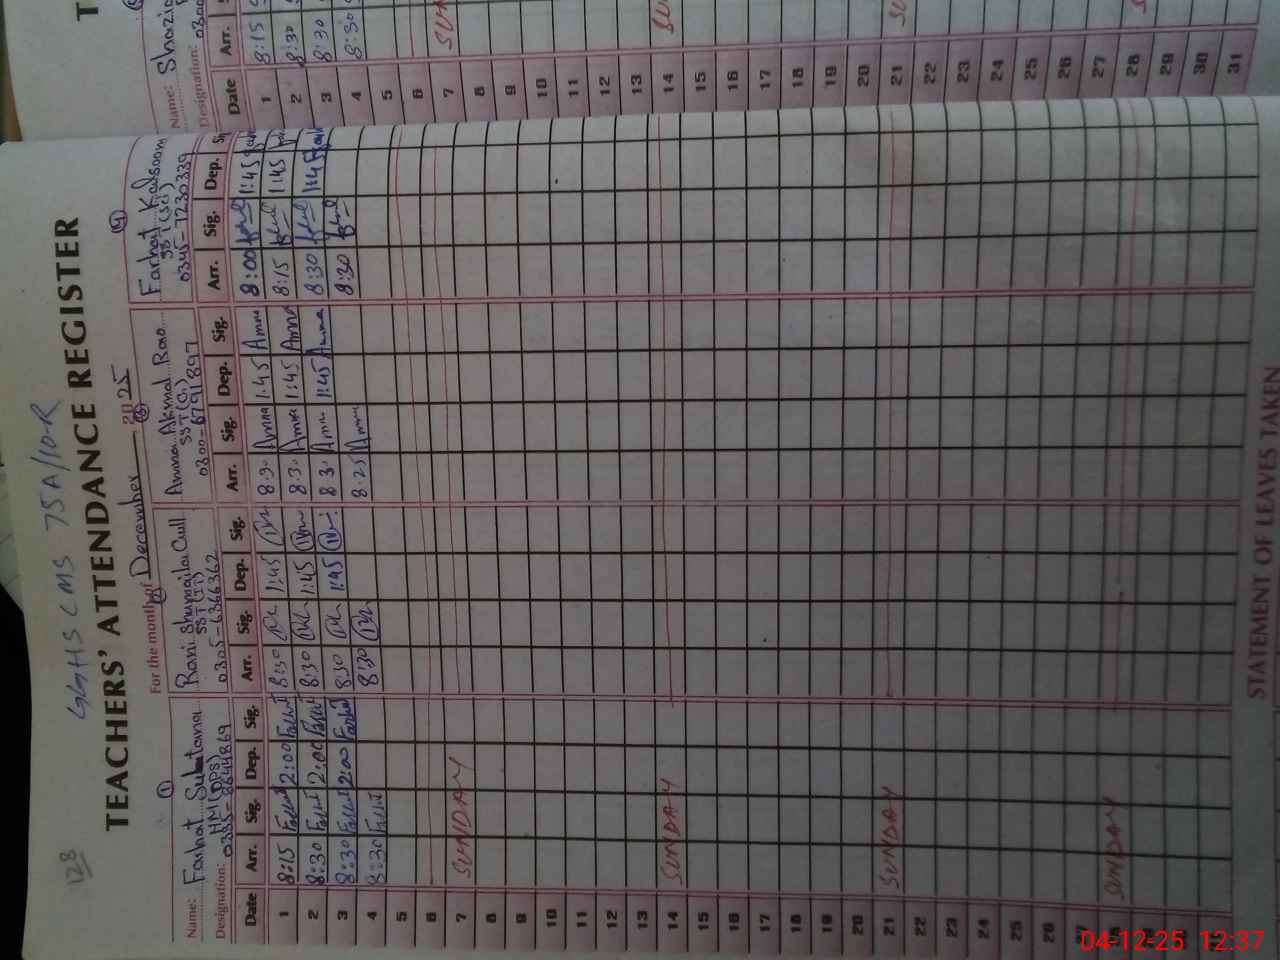 128
GGHS CMS 75A/10-R
TEACHERS' ATTENDANCE REGISTER
For the month of December 2025
① ② ③ ④
Name: Farhat Sultana Rani Shumaila Gull Amna Akmal Rao Farhat Kalsoom
Designation: HM (DPS) SST (IT) SST (C) SST (Sci)
0305-6366362 0300-6791897 0345-7230339
Date Arr. Sig. Dep. Sig. Arr. Sig. Dep. Sig. Arr. Sig. Dep. Sig. Arr. Sig. Dep.
1 8:15 2:00 8:30 1:45 8:30 Amna 1:45 Amna 8:00 1:45
2 8:30 2:00 8:30 1:45 8:30 Amna 1:45 Amna 8:15 1:45
3 8:30 2:00 8:30 1:45 8:30 Amna 1:45 Amna 8:30 1:45
4 8:30 8:30 8:25 Amna 8:30
5
6
7 SUNDAY
8
9
10
11
12
13
14 SUNDAY
15
16
17
18
19
20
21 SUNDAY
22
23
24
25
26
27
28 SUNDAY
STATEMENT OF LEAVES TAKEN
Name: Shazia
Designation:
Date Arr.
1 8:15
2 8:30
3 8:30
4 8:30
5
6
7
8
9
10
11
12
13
14
15
16
17
18
19
20
21
22
23
24
25
26
27
28
29
30
31
04-12-25 12:37